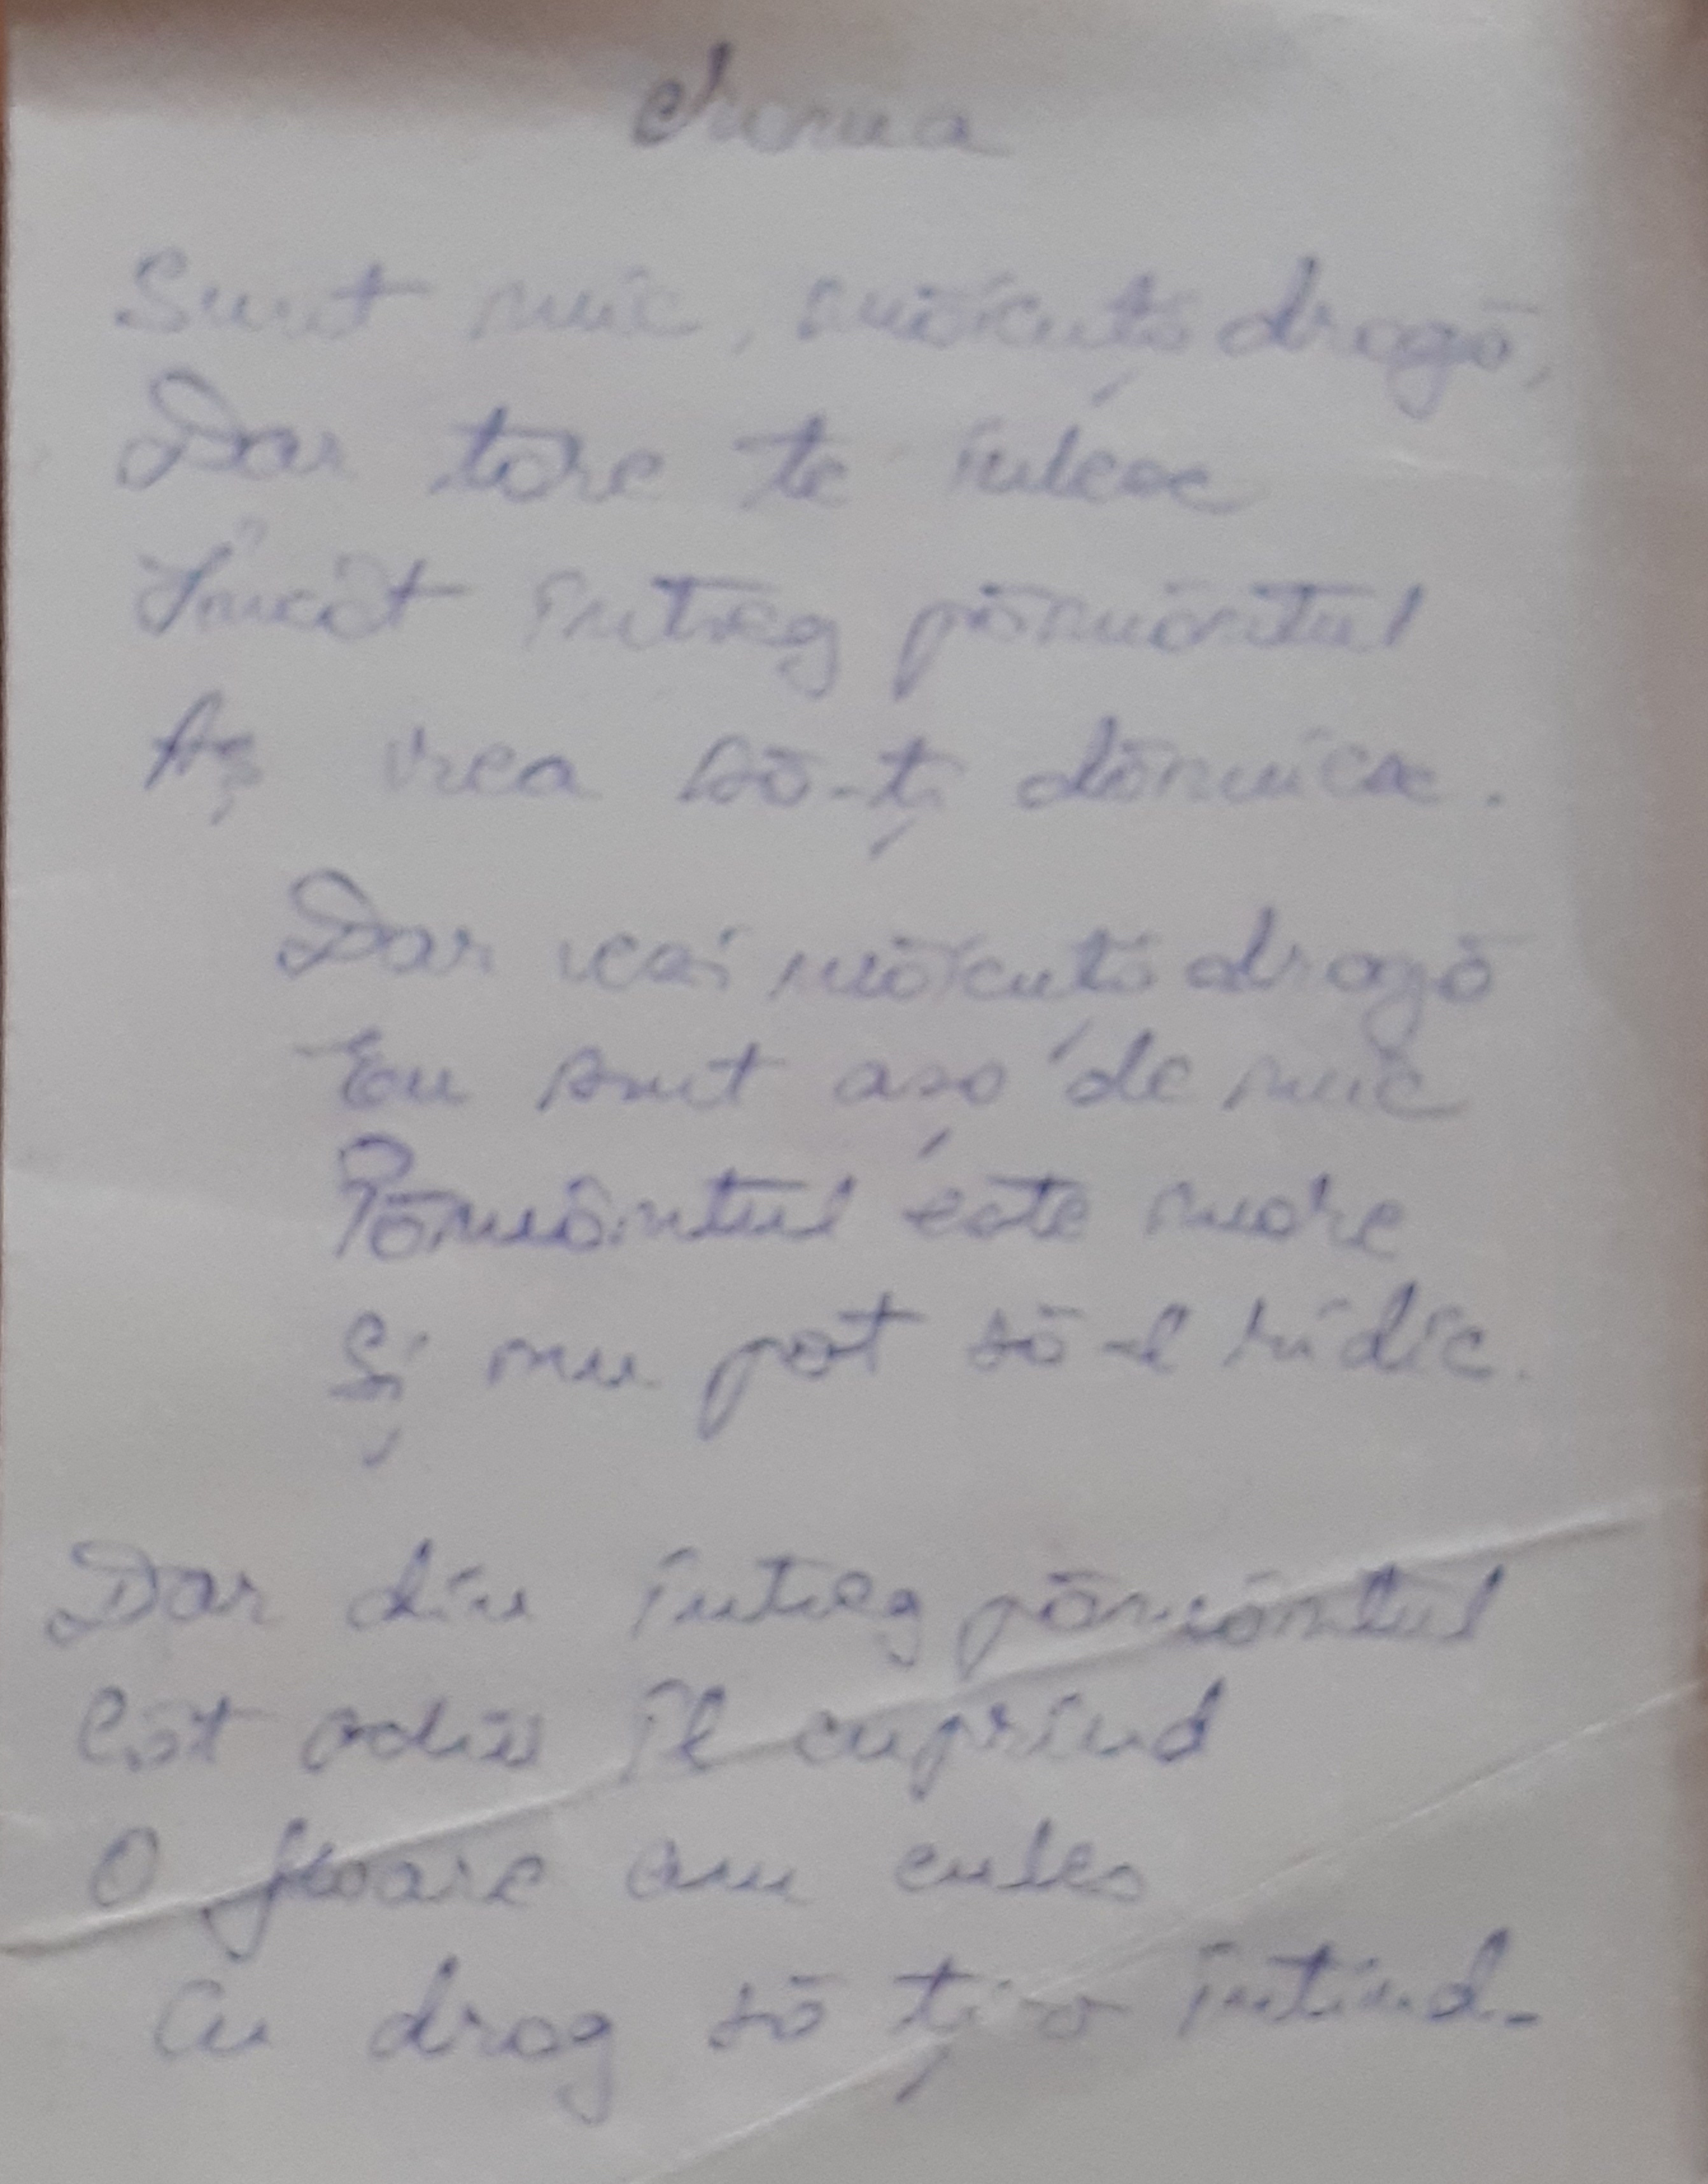 Mama
Sunt mic, măicuță dragă,
Dar tare te iubesc
Încât întreg pământul
Aș vrea să-ți dăruiesc.
Dar vezi măicuță dragă
Eu sunt așa de mic
Pământul este mare
Și nu pot să-l ridic.
Dar din întreg pământul
Cât ochii îl cuprind
O floare am cules
Cu drag să ți-o întind.